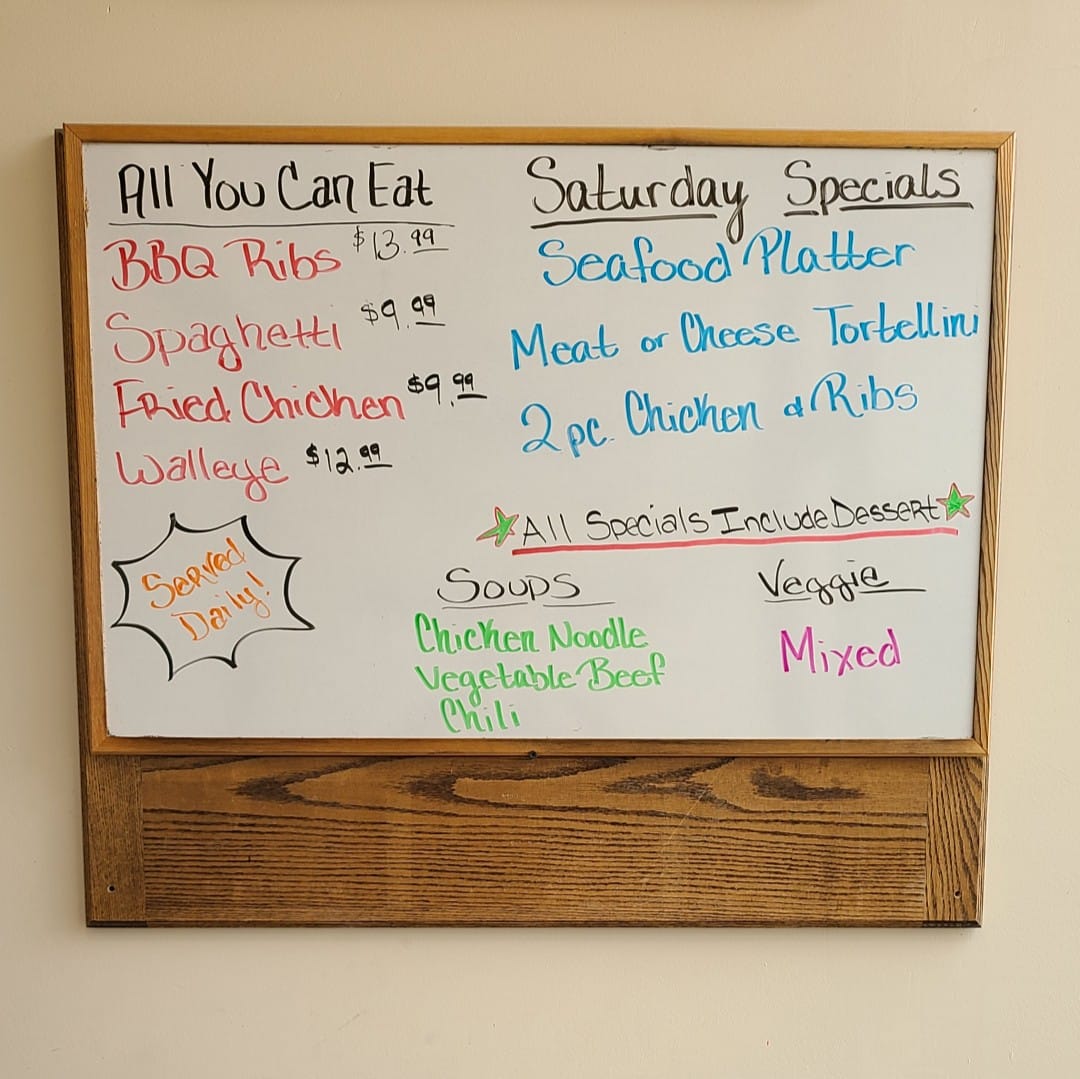 All You Can Eat
BBQ Ribs $13.99
Spaghetti $9.99
Fried Chicken $9.99
Walleye $12.99
Served
Daily!
Saturday Specials
Seafood Platter
Meat or Cheese Tortellini
2 pc. Chicken & Ribs
All Specials Include Dessert
Soups
Chicken Noodle
Vegetable Beef
Chili
Veggie
Mixed